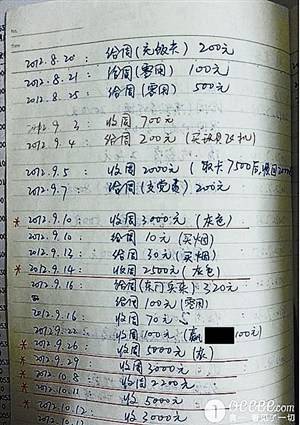 2012.8.20: 给周(充饭卡) 200元
2012.8.21: 给周(零用) 100元
2012.8.25: 给周(零用) 500元
2012.9.3: 收周700元
2012.9.4: 给周200元(买模具飞机)
2012.9.5: 收周2000元(取卡7500后,
2012.9.7: 给周(交党费)200元
* 2012.9.10: 收周3000元(灰色)
2012.9.10: 给周10元(买烟)
2012.9.13: 给周30元(买烟)
* 2012.9.14: 收周2500元(灰色)
2012.9.16 给周(东门买衣)320元
给周(100元)(零用)
2012.9.16: 收周70元
2012.9.22: 收周100元(赢 100元)
* 2012.9.26 收周5000元(灰)
* 2012.9.29 收周3000元
* 2012.10.8 收周2200元
* 2012.10.11 收周5000
2012.10.12 收周3000元